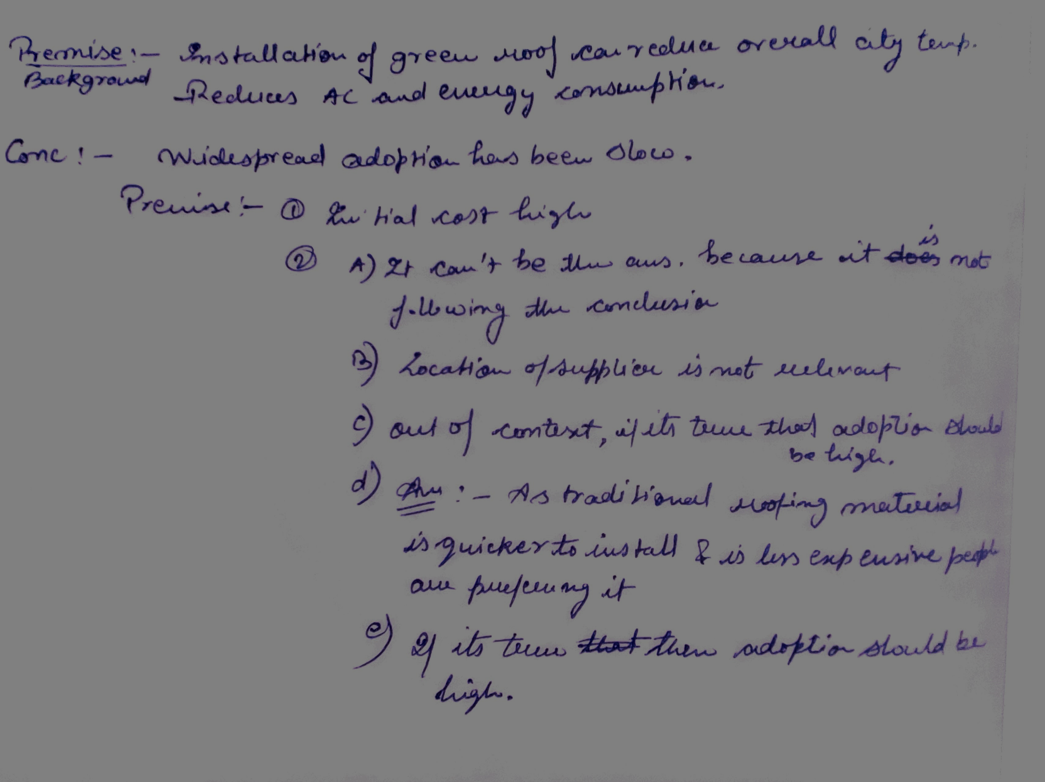 Premise :- Installation of green roof can reduce overall city temp.
Background - Reduces AC and energy consumption.
Conc :- Widespread adoption has been slow.
Premise :- ① Initial cost high
② A) It can't be the ans. because it does is not
following the conclusion
B) Location of supplier is not relevant
c) out of context, if its true that adoption should
be high.
d) Ans :- As traditional roofing material
is quicker to install & is less expensive people
are preferring it
e) If its true that then adoption should be
high.